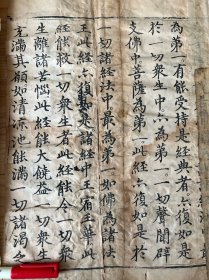 為第一有能受持是經典者亦復如是
於一切衆生中亦為第一一切聲聞辟
支佛中菩薩為第一此經亦復如是於
一切諸經法中最為第一如佛為諸法
王此經亦復如是諸經中王宿王華此
經能救一切衆生者此經能令一切衆
生離諸苦惱此經能大饒益一切衆生
充滿其願如清凉池能滿一切諸渴乏